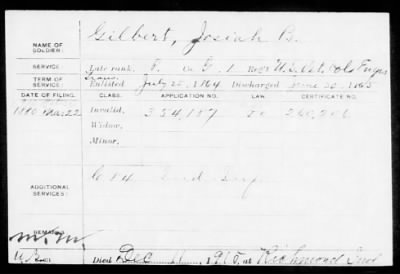 Gilbert, Josiah B.
NAME OF SOLDIER:
SERVICE: Late rank, P. Co. G. 1 Reg't U.S. Vet. Vols Engrs
TERM OF SERVICE: Enlisted July 25, 1864 Discharged June 1865
DATE OF FILING. CLASS. APPLICATION NO. LAW. CERTIFICATE NO.
1880 Mar. 22 Invalid, 354,187
Widow,
Minor,
ADDITIONAL SERVICES: C
REMARKS:
Died Dec 11, 1915, at Richmond Ind